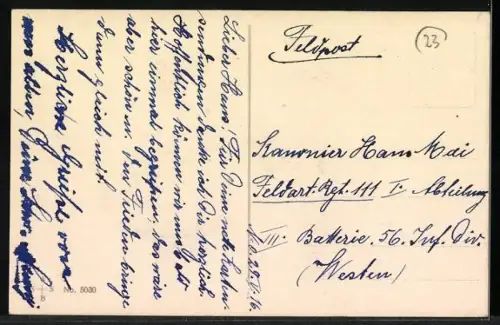 Feldpost
23
Lieber Hans! Für Deine netten Karten
sendungen danke ich Dir herzlich.
Hoffentlich können wir uns bald
hier einmal begrüßen, das wäre
aber schön u. den Frieden bringe
dann gleich mit.
Herzliche Grüße von
uns allen, Deine
Kanonier Hans Mai
Feldart. Rgt. 111 I. Abteilung
III. Batterie. 56. Inf. Div.
(Westen)
No. 5030